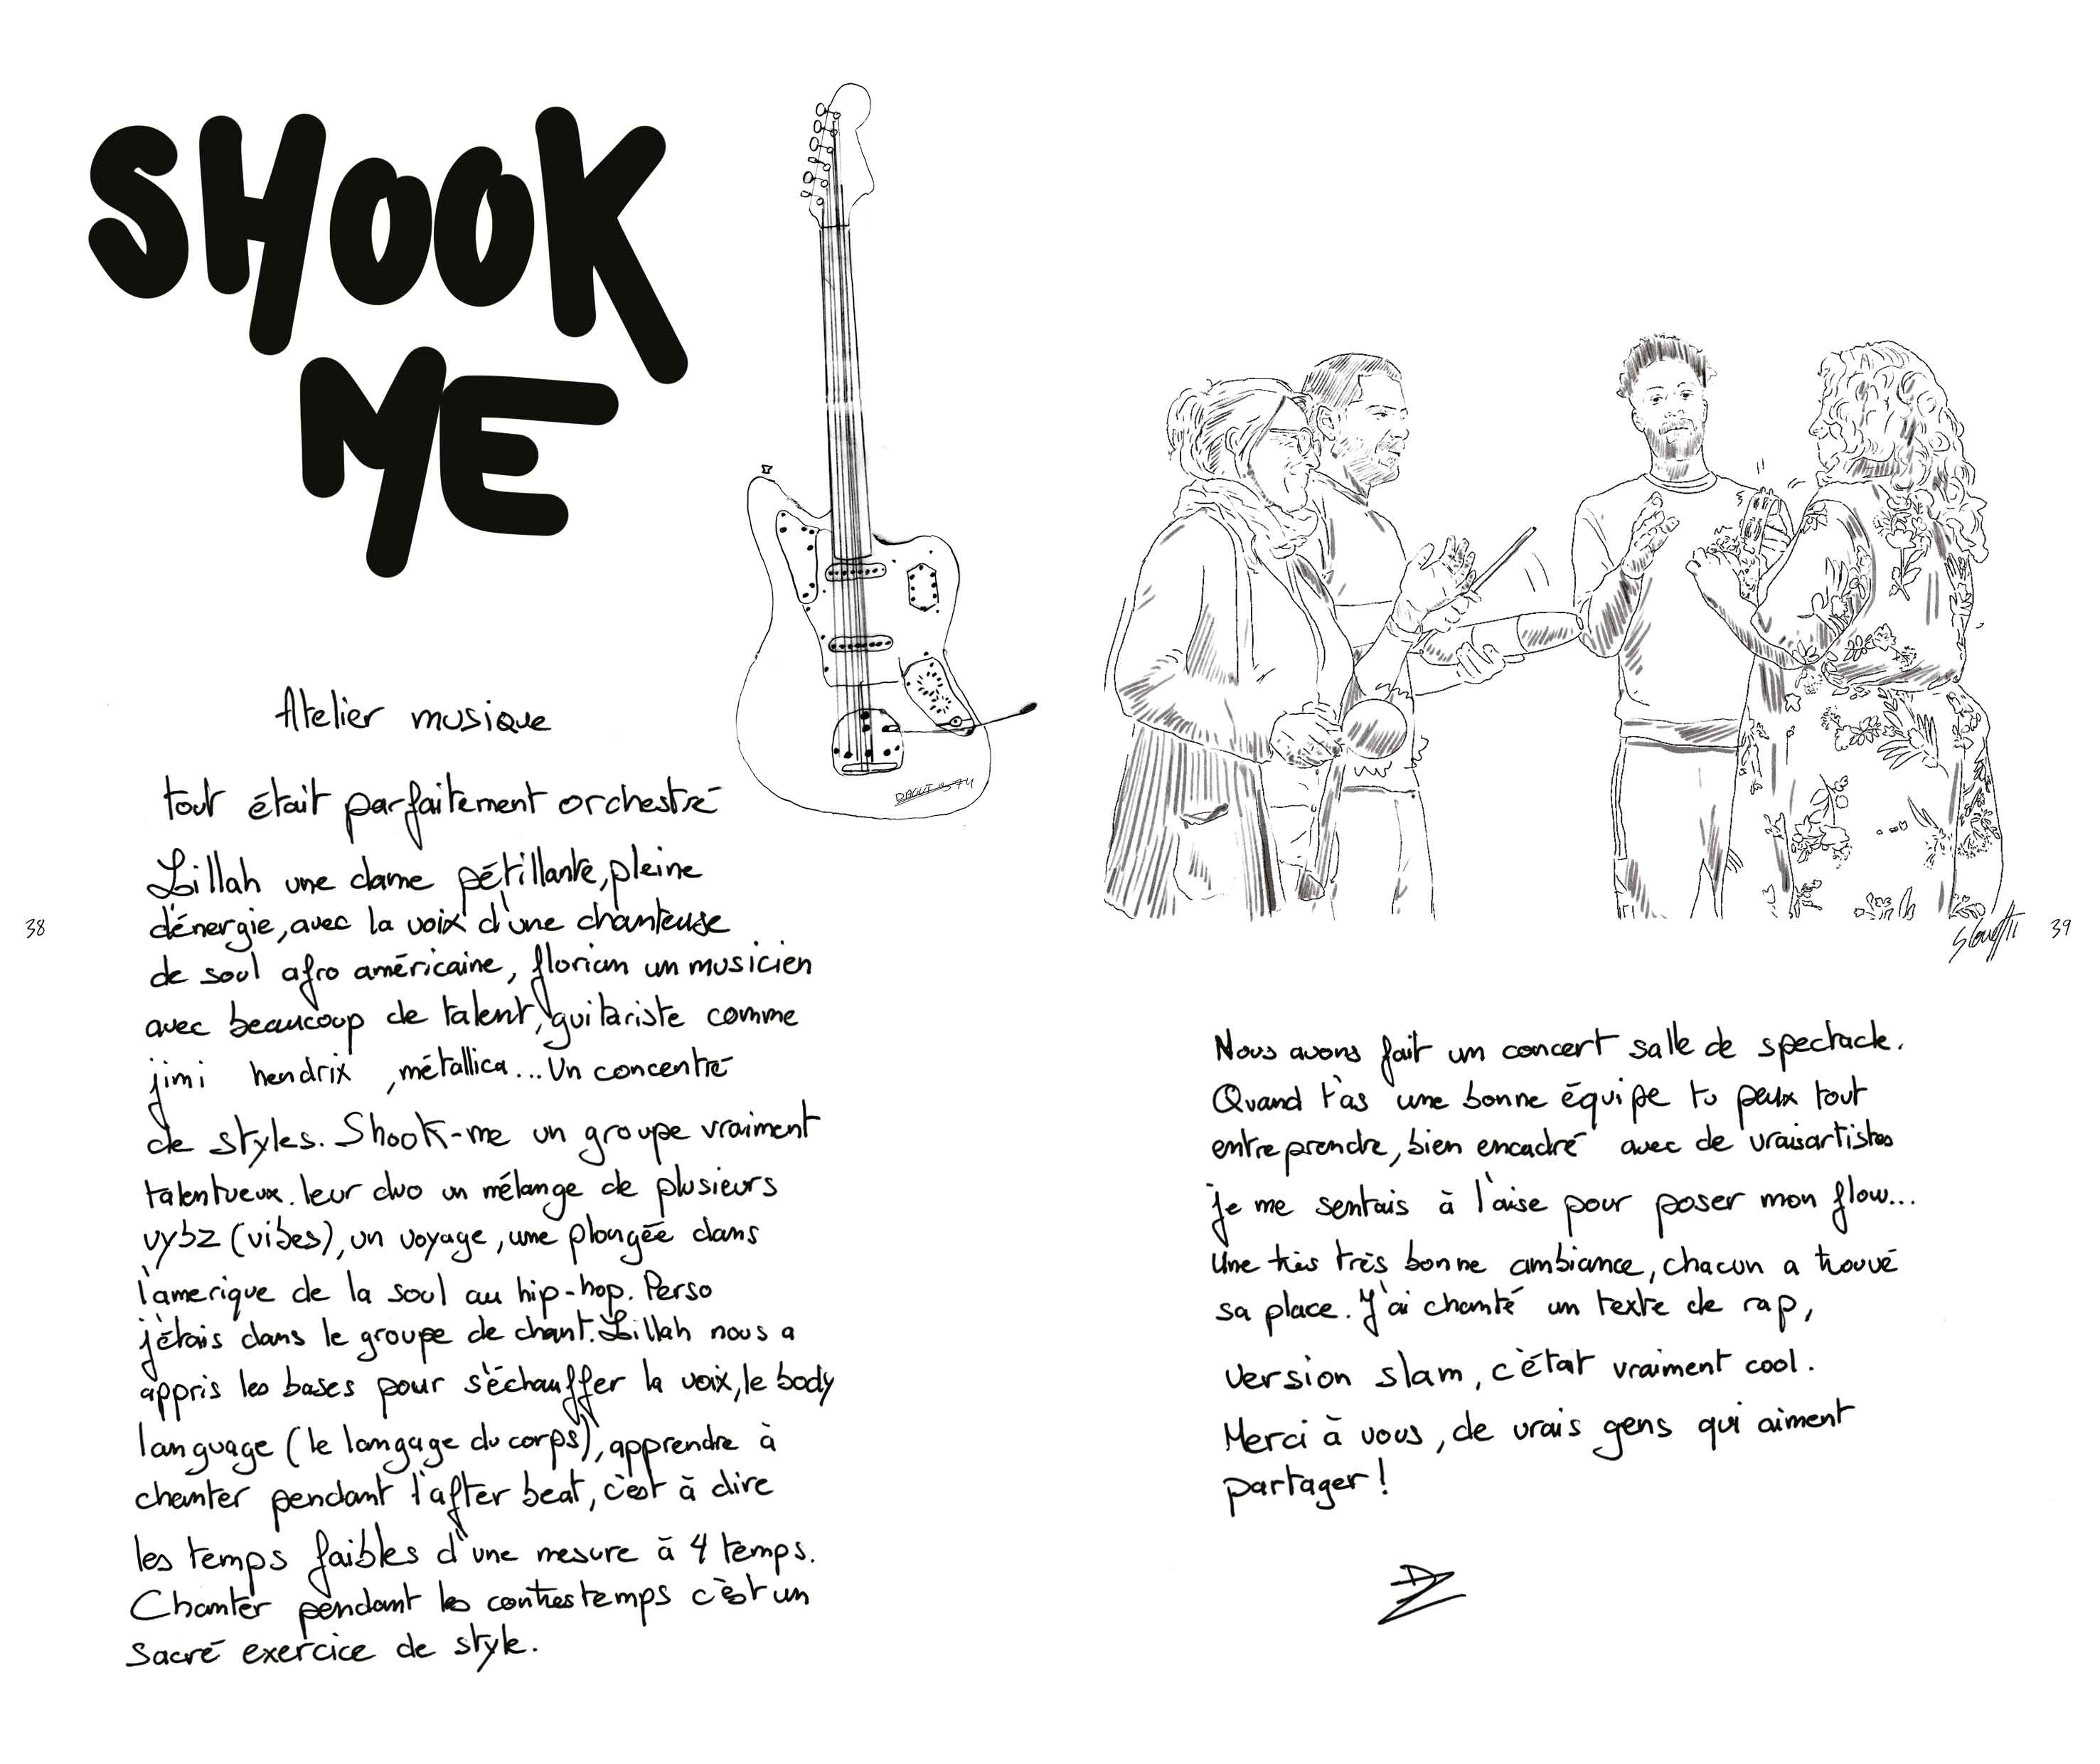 SHOOK
ME
Atelier musique
tout était parfaitement orchestré
Lillah une dame pétillante, pleine
d'énergie, avec la voix d'une chanteuse
de soul afro américaine, florian un musicien
avec beaucoup de talent, guitariste comme
jimi hendrix, métallica... Un concentré
de styles. Shook-me un groupe vraiment
talentueux. leur duo un mélange de plusieurs
vybz (vibes), un voyage, une plongée dans
l'amerique de la soul au hip-hop. Perso
j'étais dans le groupe de chant. Lillah nous a
appris les bases pour s'échauffer la voix, le body
language (le langage du corps), apprendre à
chanter pendant l'after beat, c'est à dire
les temps faibles d'une mesure à 4 temps.
Chanter pendant les contrestemps c'est un
sacré exercice de style.
38
Nous avons fait un concert salle de spectacle.
Quand t'as une bonne équipe tu peux tout
entreprendre, bien encadré avec de vrais artistes
je me sentais à l'aise pour poser mon flow...
Une très très bonne ambiance, chacun a trouvé
sa place. J'ai chanté un texte de rap,
version slam, c'était vraiment cool.
Merci à vous, de vrais gens qui aiment
partager !
DZ
39